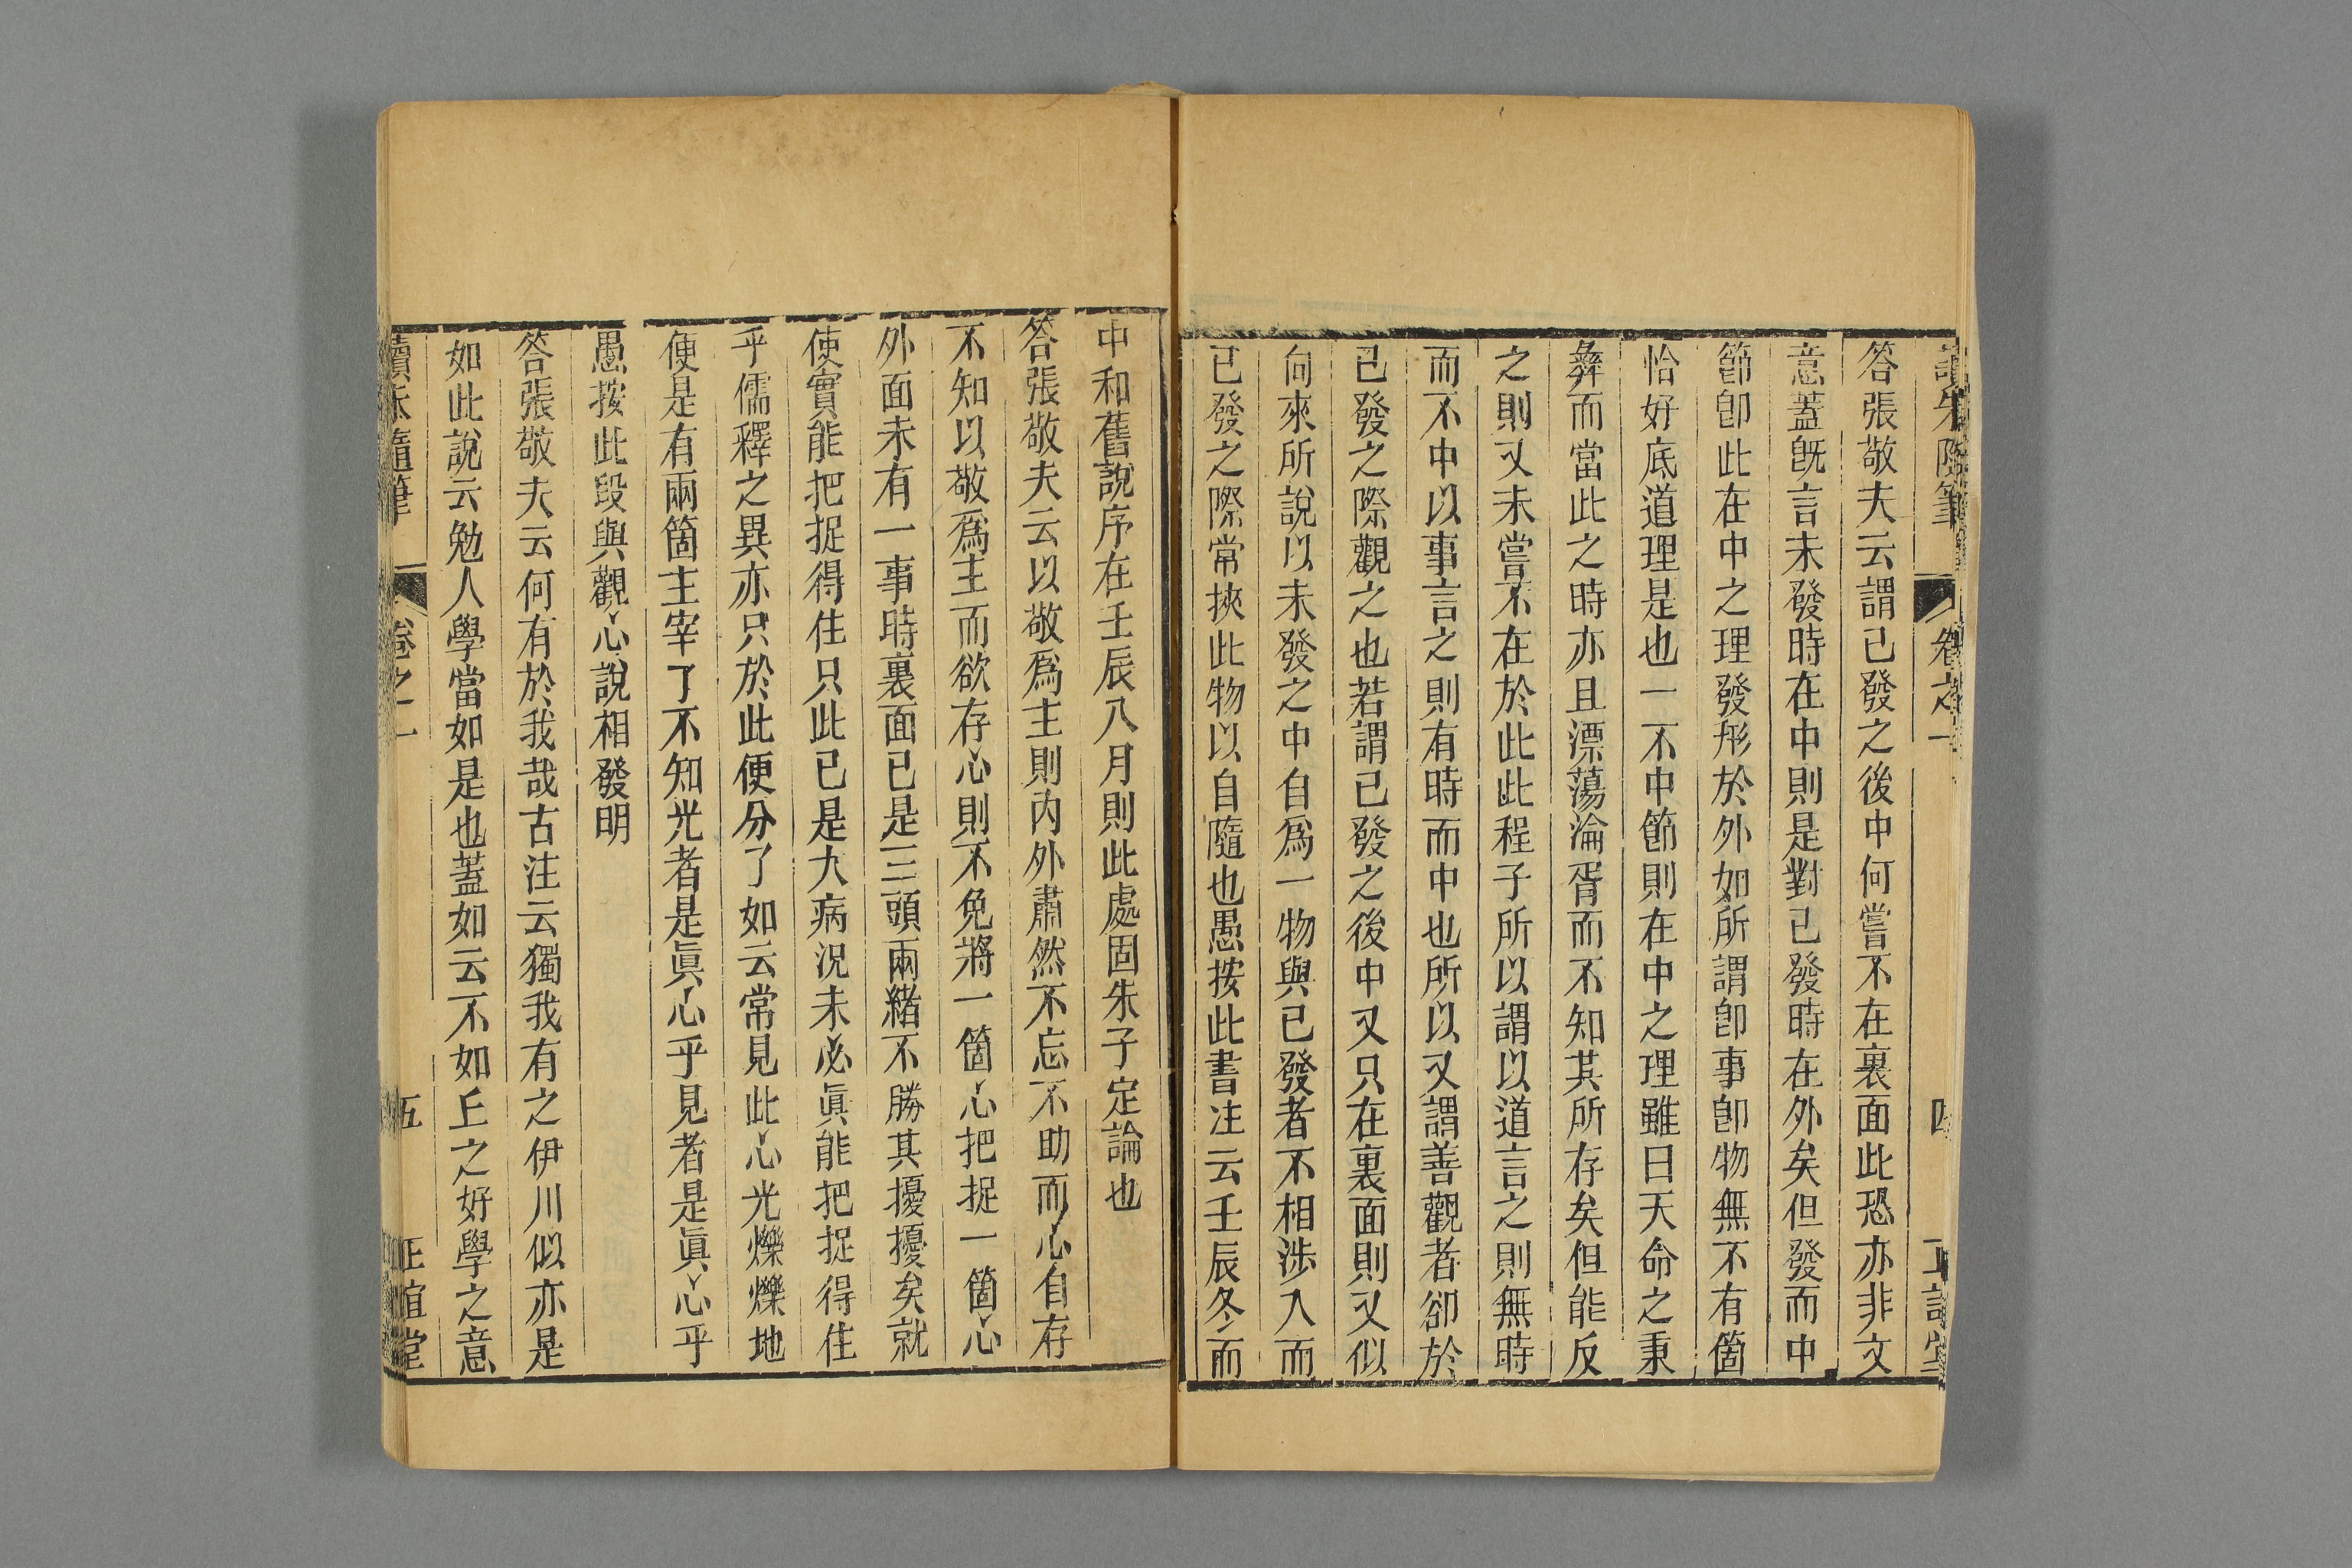 讀朱隨筆 卷之一 四 正誼堂
答張敬夫云謂已發之後中何嘗不在裏面此恐亦非文
意蓋旣言未發時在中則是對已發時在外矣但發而中
節卽此在中之理發形於外如所謂卽事卽物無不有箇
恰好底道理是也一不中節則在中之理雖曰天命之秉
彝而當此之時亦且漂蕩淪胥而不知其所存矣但能反
之則又未嘗不在於此此程子所以謂以道言之則無時
而不中以事言之則有時而中也所以又謂善觀者卻於
已發之際觀之也若謂已發之後中又只在裏面則又似
向來所說以未發之中自爲一物與已發者不相涉入而
已發之際常挾此物以自隨也愚按此書注云壬辰冬而
中和舊說序在壬辰八月則此處固朱子定論也
答張敬夫云以敬爲主則內外肅然不忘不助而心自存
不知以敬爲主而欲存心則不免將一箇心把捉一箇心
外面未有一事時裏面已是三頭兩緒不勝其擾擾矣就
使實能把捉得住只此已是大病況未必眞能把捉得住
乎儒釋之異亦只於此便分了如云常見此心光爍爍地
便是有兩箇主宰了不知光者是眞心乎見者是眞心乎
愚按此段與觀心說相發明
答張敬夫云何有於我哉古注云獨我有之伊川似亦是
如此說云勉人學當如是也蓋如云不如丘之好學之意
讀朱隨筆 卷之一 五 正誼堂